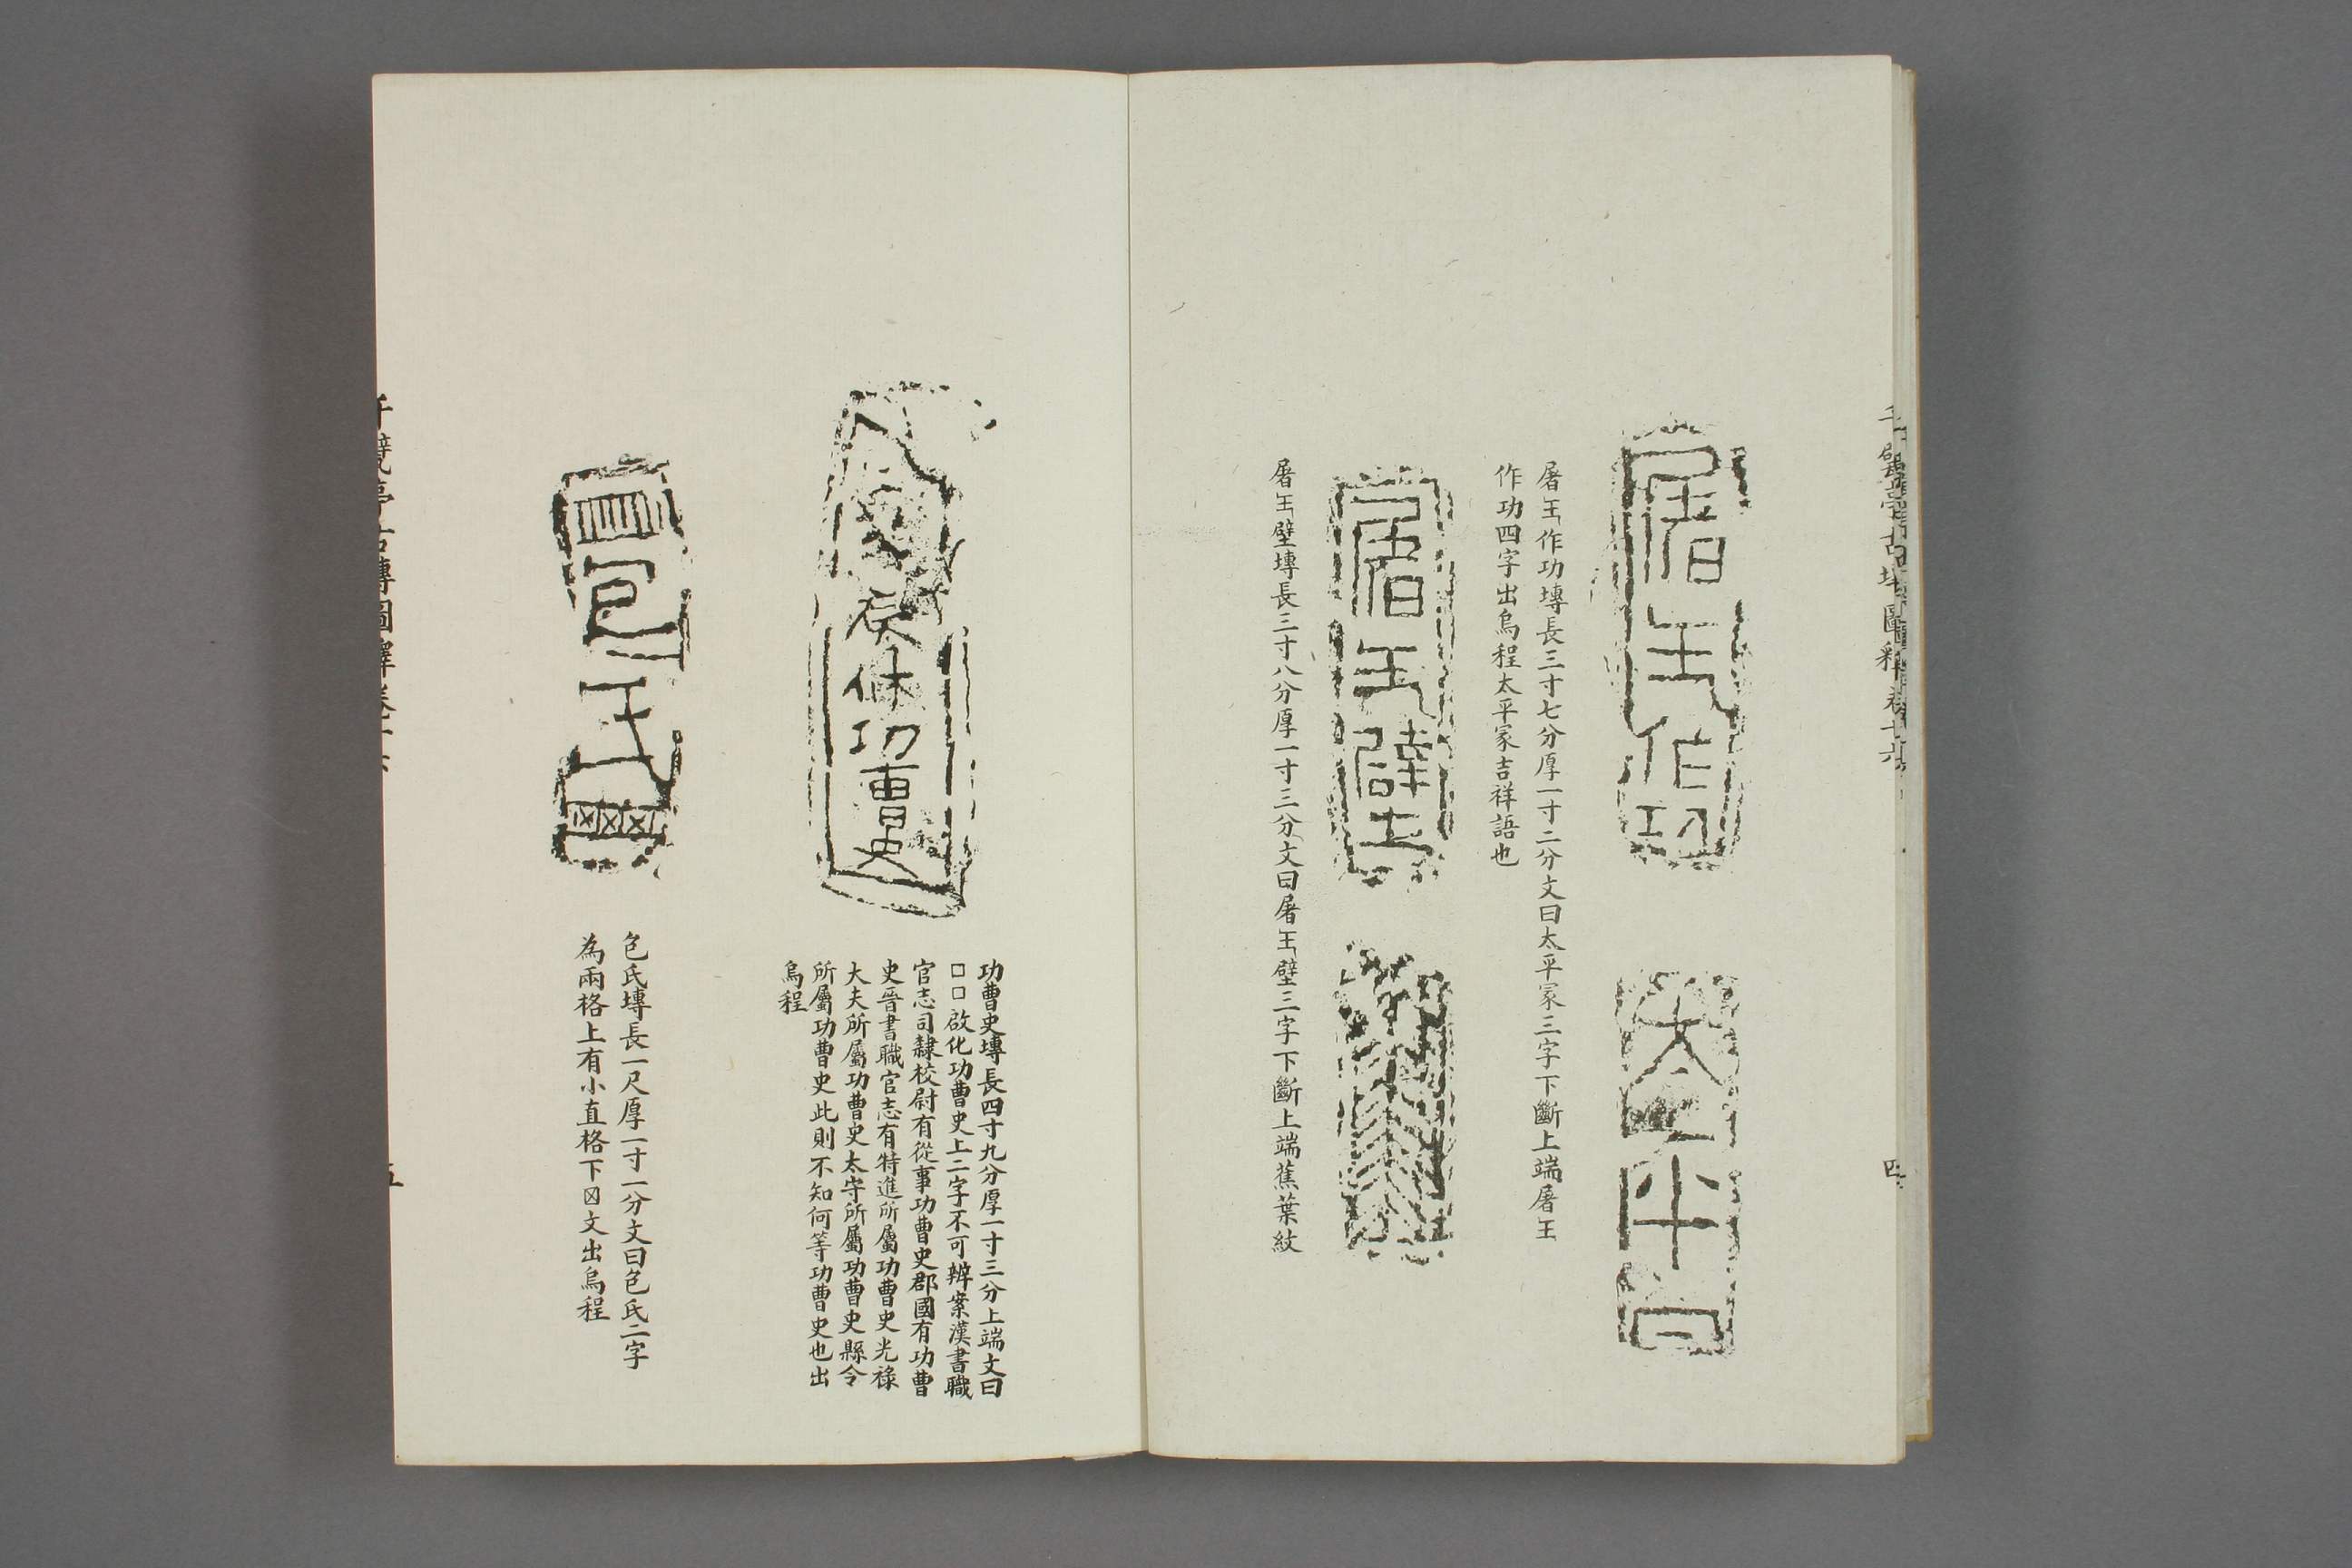 千甓亭古塼圖釋卷十六
四
屠
作功
太平冡
屠𤣩作功塼長三寸七分厚一寸二分文曰太平冡三字下斷上端屠𤣩
作功四字出烏程太平冡吉祥語也
屠
壁
屠𤣩壁塼長三寸八分厚一寸三分文曰屠𤣩壁三字下斷上端蕉葉紋
功曹史
功曹史塼長四寸九分厚一寸三分上端文曰
□□啟化功曹史上二字不可辨案漢書職
官志司隸校尉有從事功曹史郡國有功曹
史晉書職官志有特進所屬功曹史光祿
大夫所屬功曹史太守所屬功曹史縣令
所屬功曹史此則不知何等功曹史也出
烏程
包氏
包氏塼長一尺厚一寸一分文曰包氏二字
為兩格上有小直格下⊠文出烏程
千甓亭古塼圖釋卷十六
五